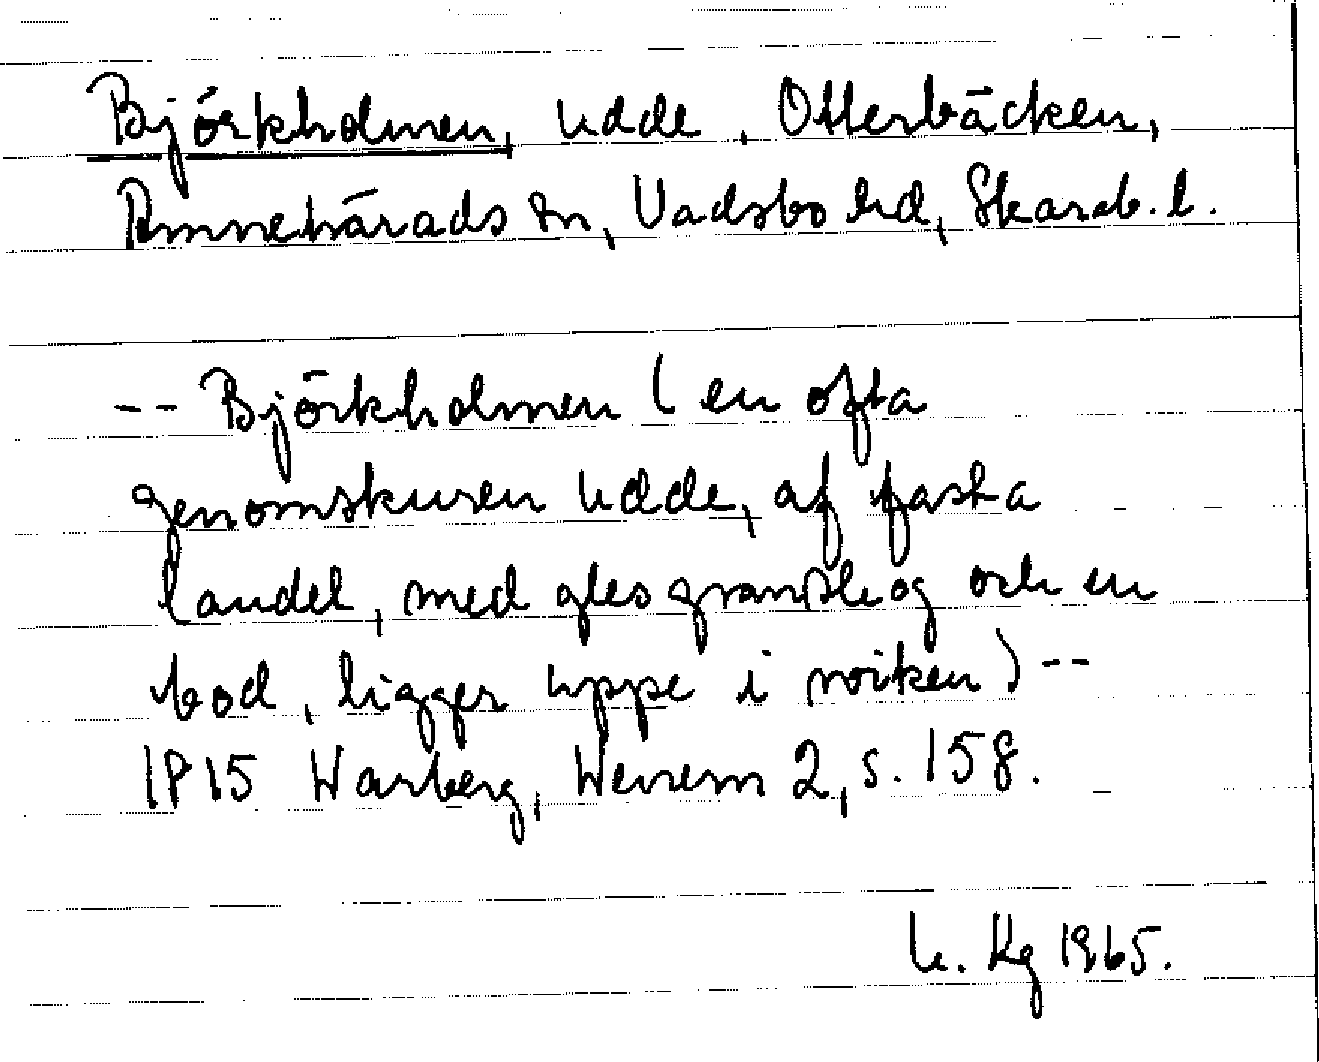 Björkholmen, udde, Otterbäcken,
Amnehärads sn, Vadsbo hd, Skarab. l.
-- Björkholmen (en ofta
genomskuren udde, af fasta
landet, med gles granskog och en
bod, ligger uppe i wiken) --
1815 Warberg, Wenern 2, s. 158.
U. Kg 1965.